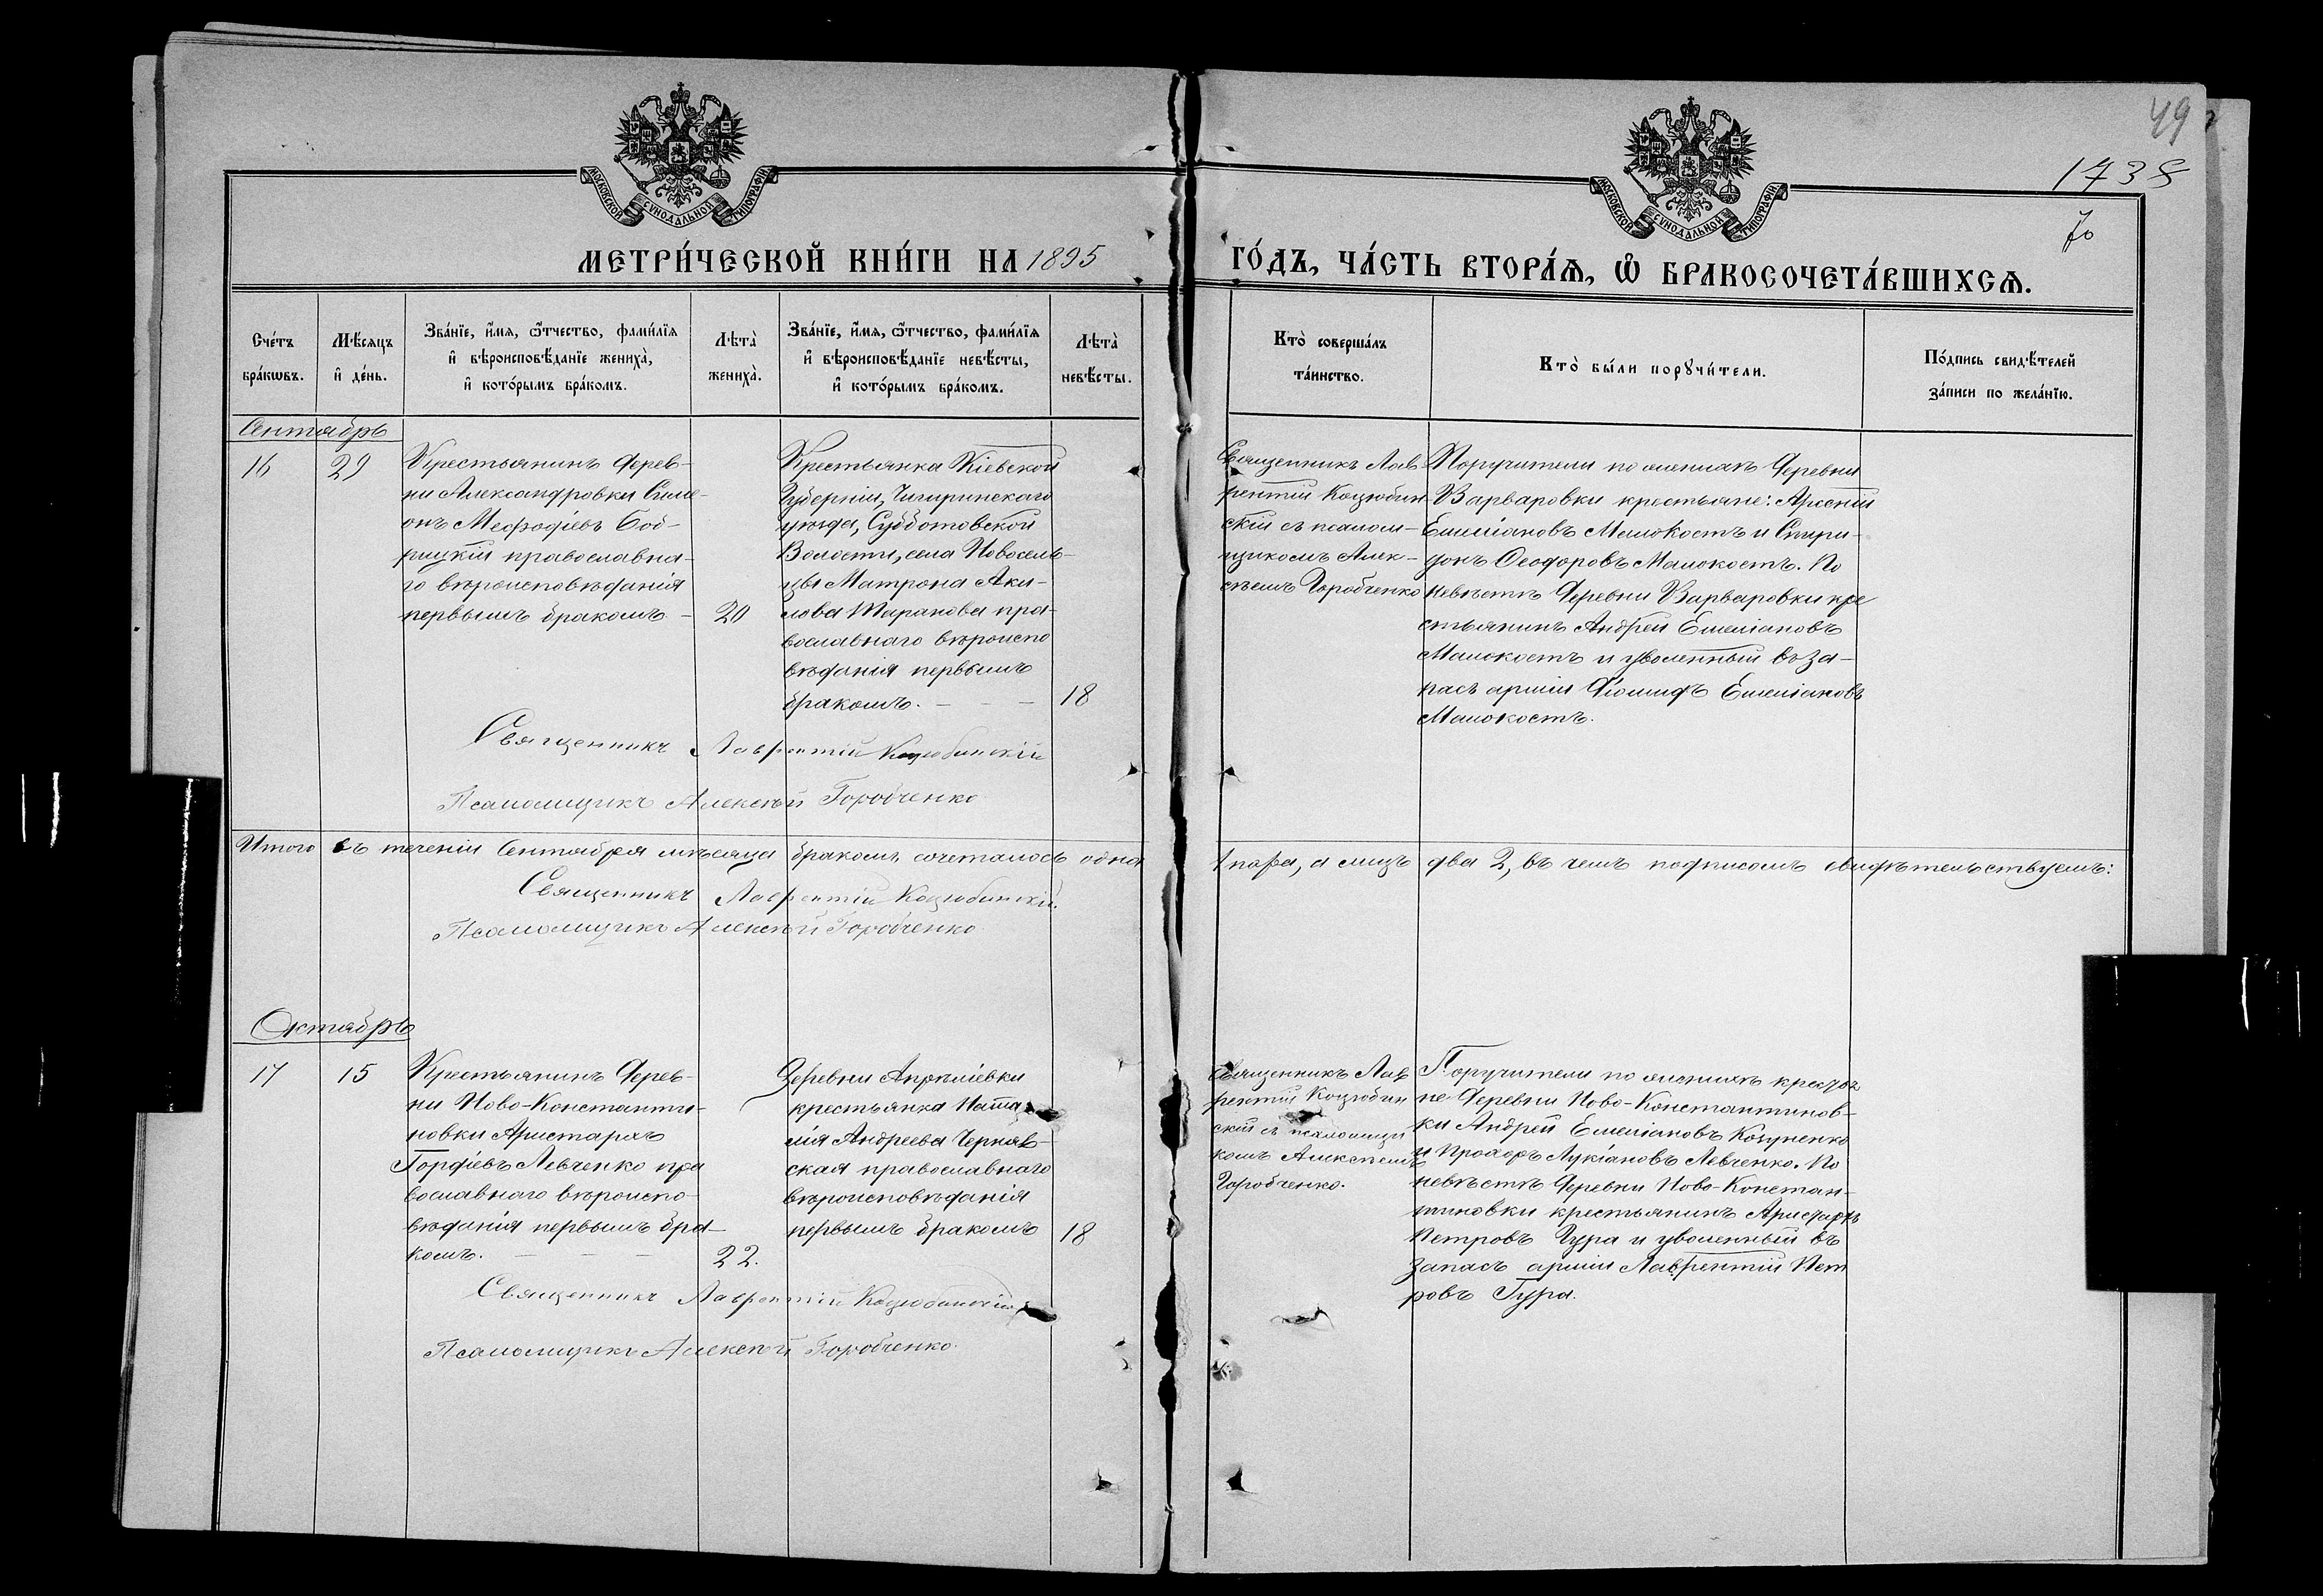 49
1738
70
МОСКОВСКОЙ СУНОДАЛЬНОЙ ТИПОГРАФІИ
МОСКОВСКОЙ СУНОДАЛЬНОЙ ТИПОГРАФІИ
МЕТРИ́ЧЕСКОЙ КНИ́ГИ НА 1895
ГО́ДЪ, ЧА́СТЬ ВТОРА́Ѧ, Ѡ҆ БРАКОСОЧЕТА́ВШИХСѦ.
Сче́тъ
бра́кѡвъ.
Мѣ́сяцъ
и҆ де́нь.
Зва́нїе, и҆́мя, ѻ҆́тчество, фами́лїя
и҆ вѣроисповѣ́данїе жениха̀,
и҆ кото́рымъ бра́комъ.
Лѣта̀
жениха̀.
Зва́нїе, и҆́мя, ѻ҆́тчество, фами́лїя
и҆ вѣроисповѣ́данїе невѣ́сты,
и҆ кото́рымъ бра́комъ.
Лѣта̀
невѣ́сты.
Кто̀ соверша́лъ
та́инство.
Кто̀ бы́ли порꙋчи́тели.
По́дпись свидѣ́телей
за́писи по жела́нїю.
Сентябрь
16
29
Крестьянинъ дерев-
ни Александровки Симе-
онъ Меѳодіевъ Боб-
рицкій православна-
го вѣроисповѣданія
первымъ бракомъ. -
20
Крестьянка Кіевской
Губерніи, Чигиринскаго
уѣзда, Субботовской
Волости, села Новосель-
цы Матрона Аки-
лова Таранова пра-
вославнаго вѣроиспо
вѣданія первымъ
бракомъ. - - -
18
Священникъ Лав-
рентій Коцюбин-
скій съ псалом-
щикомъ Алек-
сѣемъ Горобченко
Поручители по женихѣ Деревни
Варваровки крестьяне: Арсеній
Емеліановъ Малокостъ и Спири-
донъ Ѳеодоровъ Малокостъ. По
невѣстѣ Деревни Варваровки кре
стьянинъ Андрей Емеліановъ
Малокостъ и уволенный въ за-
пасъ арміи Емеліановъ
Малокостъ.
Священникъ Лаврентій Коцюбинскій
Псаломщикъ Алексѣй Горобченко
Итого въ теченіи Сентября мѣсяца бракомъ сочеталось одна
1 пара, а лицъ два 2, въ чемъ подписомъ свидѣтельствуемъ:
Священникъ Лаврентій Коцюбинскій.
Псаломщикъ Алексѣй Горобченко.
Октябрь
17
15
Крестьянинъ Дерев-
ни Ново-Константи-
новки Аристархъ
Гордіевъ Левченко пра
вославнаго вѣроиспо-
вѣданія первымъ бра-
комъ. - - -
22.
Деревни Апрѣліевки
крестьянка Ната-
лія Андреева Черняв-
ская православнаго
вѣроисповѣданія
первымъ бракомъ
18
Священникъ Лав
рентій Коцюбин
скій съ псаломщи
комъ Алексѣемъ
Горобченко.
Поручители по женихѣ крестья
не Деревни Ново-Константинов-
ки Андрей Емеліановъ
и Прохоръ Лукіановъ Левченко. По
невѣстѣ Деревни Ново-Констан-
тиновки крестьянинъ Аристархъ
Петровъ Гура и уволенный въ
запасъ арміи Лаврентій Пет
ровъ Гура.
Священникъ Лаврентій Коцюбинскій
Псаломщикъ Алексѣй Горобченко.